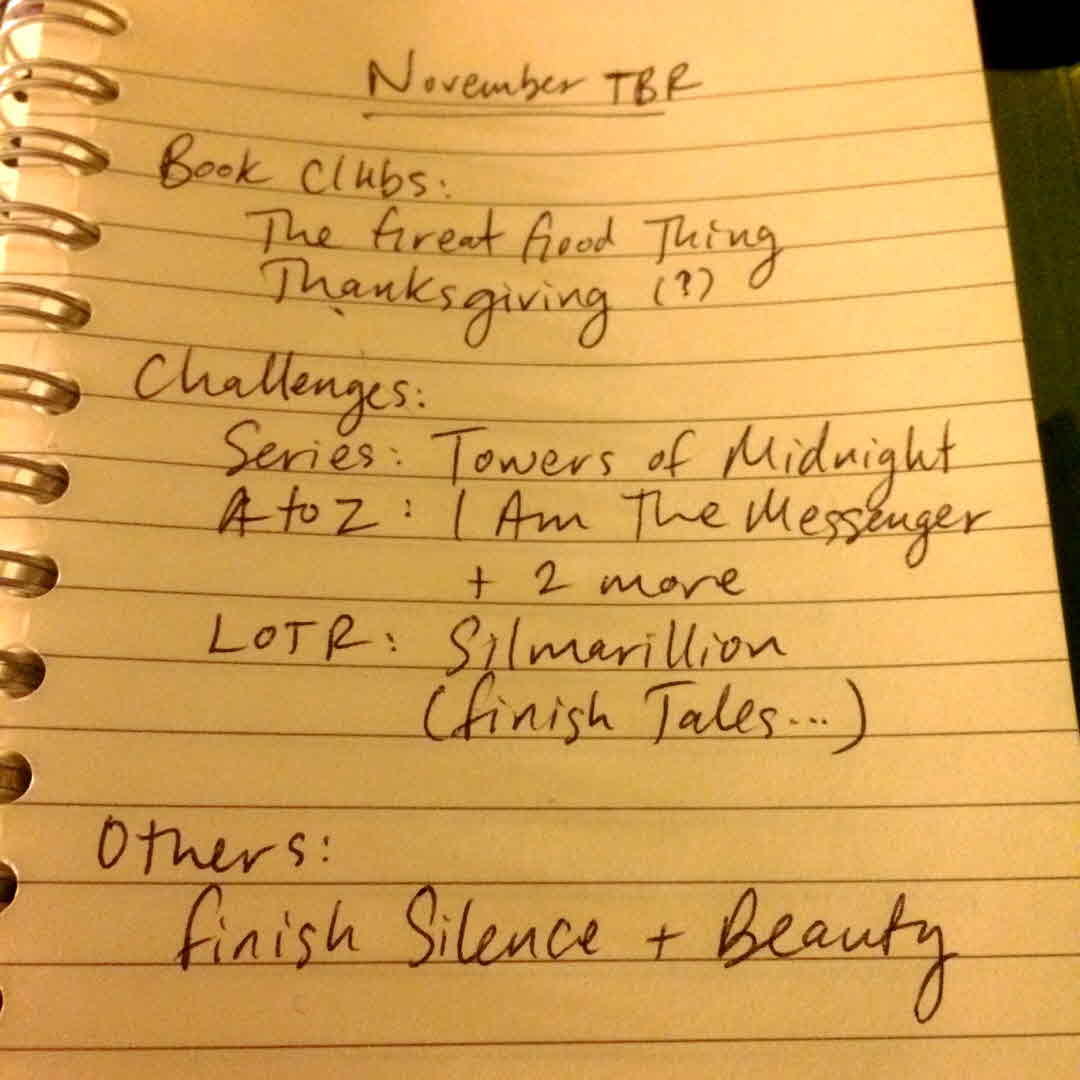 November TBR
Book Clubs:
The Great Good Thing
Thanksgiving (?)
Challenges:
Series: Towers of Midnight
A to Z: I Am The Messenger
+ 2 more
LOTR: Silmarillion
(finish Tales...)
Others:
finish Silence + Beauty